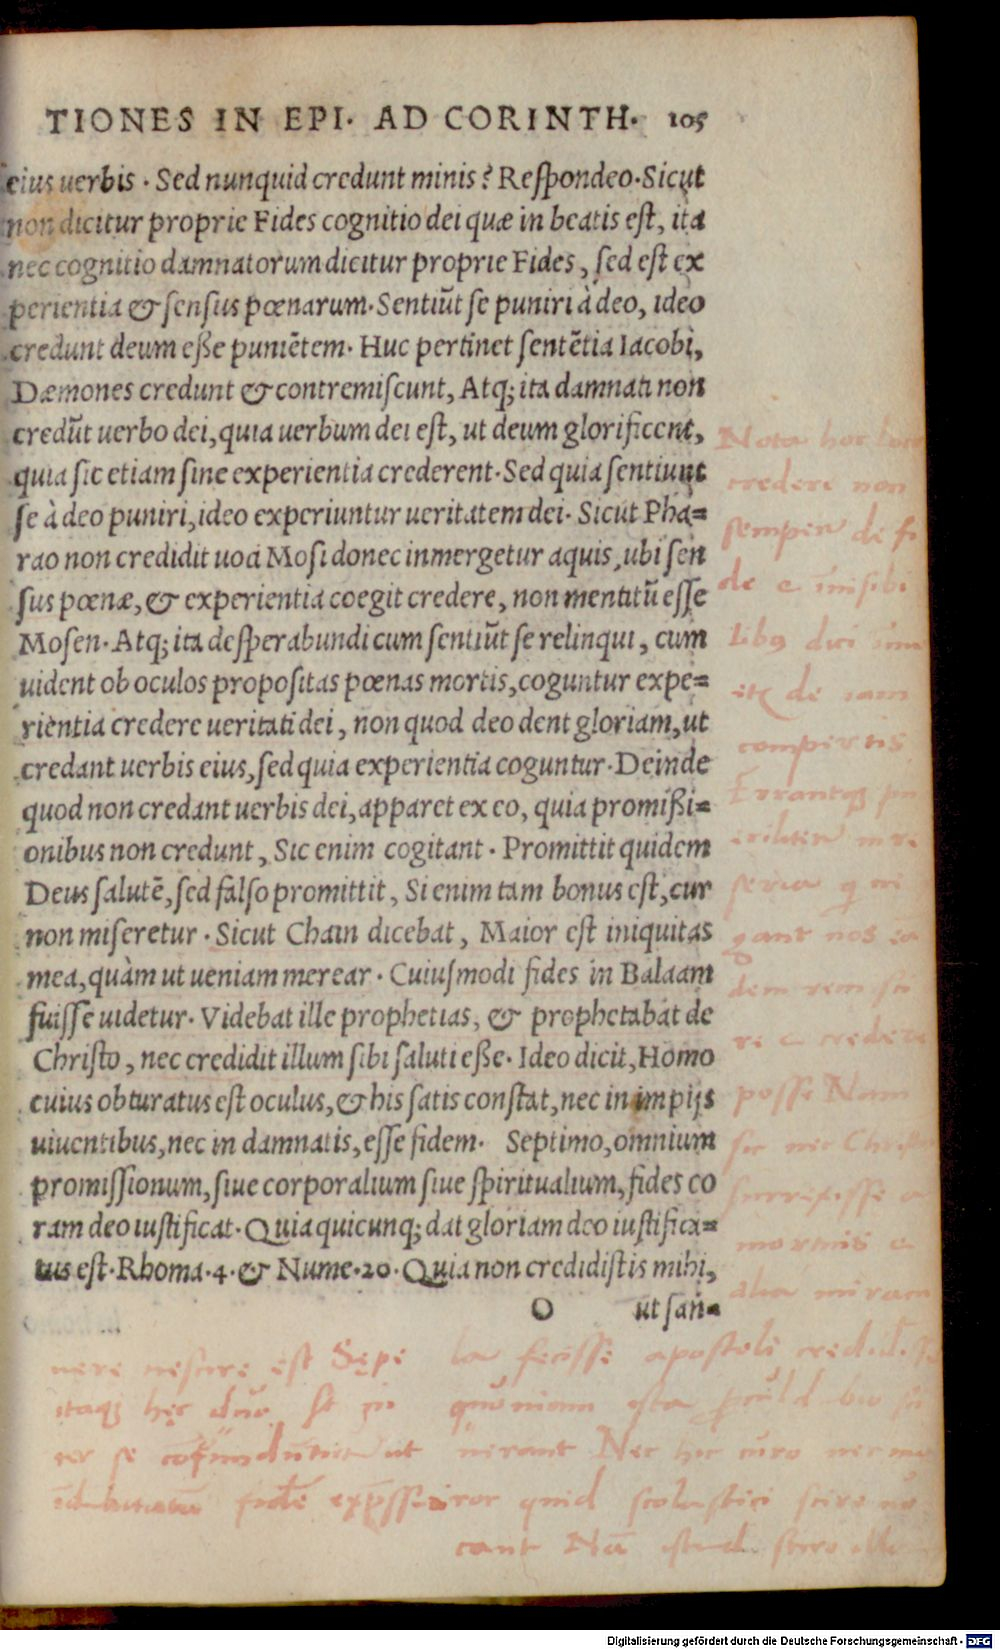 TIONES IN EPI. AD CORINTH. 105
eius uerbis. Sed nunquid credunt minis? Respondeo. Sicut
non dicitur proprie Fides cognitio dei quæ in beatis est, ita
nec cognitio damnatorum dicitur proprie Fides, sed est ex
perientia & sensus pœnarum. Sentiũt se puniri à deo, ideo
credunt deum eße puniẽtem. Huc pertinet sentẽtia Iacobi,
Dæmones credunt & contremiscunt, Atq; ita damnati non
credũt uerbo dei, quia uerbum dei est, ut deum glorificent,
quia sic etiam sine experientia crederent. Sed quia sentiunt
se à deo puniri, ideo experiuntur ueritatem dei. Sicut Pha=
rao non credidit uoci Mosi donec inmergetur aquis, ubi sen
sus pœnæ, & experientia coegit credere, non mentitũ esse
Mosen. Atq; ita desperabundi cum sentiũt se relinqui, cum
uident ob oculos propositas pœnas mortis, coguntur expe=
rientia credere ueritati dei, non quod deo dent gloriam, ut
credant uerbis eius, sed quia experientia coguntur. Deinde
quod non credant uerbis dei, apparet ex eo, quia promißi=
onibus non credunt, Sic enim cogitant. Promittit quidem
Deus salutẽ, sed falso promittit, Si enim tam bonus est, cur
non miseretur. Sicut Chain dicebat, Maior est iniquitas
mea, quàm ut ueniam merear. Cuiusmodi fides in Balaam
fuisse uidetur. Videbat ille prophetias, & prophetabat de
Christo, nec credidit illum sibi saluti eße. Ideo dicit, Homo
cuius obturatus est oculus, & his satis constat, nec in impijs
uiuentibus, nec in damnatis, esse fidem. Septimo, omnium
promissionum, siue corporalium siue spiritualium, fides co
ram deo iustificat. Quia quicunq; dat gloriam deo iustifica=
tus est. Rhoma. 4. & Nume. 20. Quia non credidistis mihi,
O ut san=
Nota hoc loco
credere non
semper de fi
de
dici
de iam
compertis
re
nos
dem rem
credere
posse Nam
sic nec Christ
surrexisse a
mortuis
alia miracu
nere nescire est Sępe
itaq hęc duo
ter se ut
fidẽ
la fecisse apostoli
quoniam ista
uerant Nec hic curo nec
ror quid scolastici scire uo
cant Nã istud
Digitalisierung gefördert durch die Deutsche Forschungsgemeinschaft - DFG